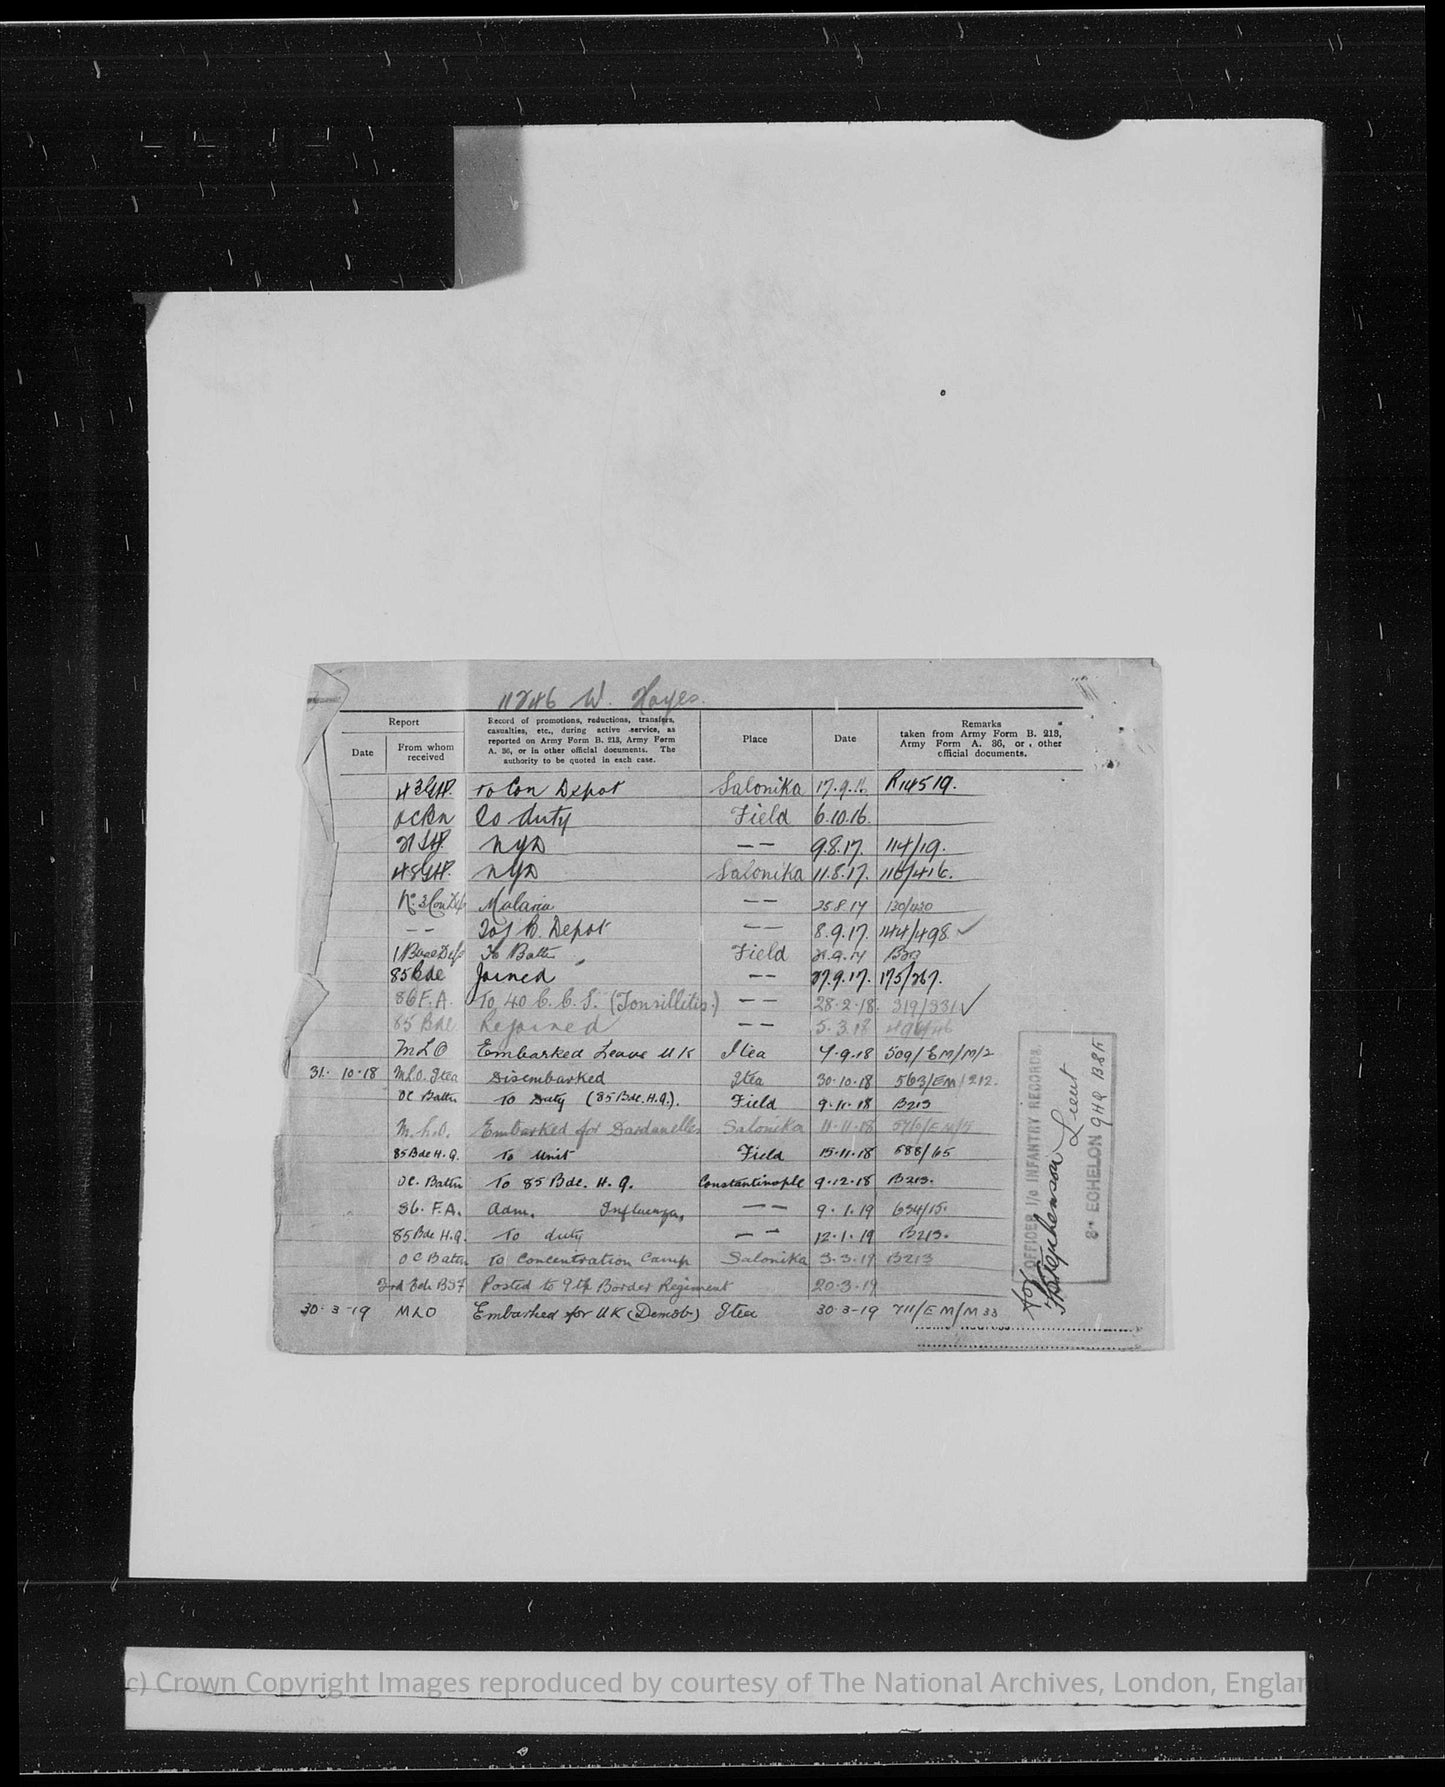 11246 W. Hayes.
Report
Record of promotions, reductions, transfers, casualties, etc., during active service, as reported on Army Form B. 213, Army Form A. 36, or in other official documents. The authority to be quoted in each case.
Place
Date
Remarks taken from Army Form B. 213, Army Form A. 36, or other official documents.
Date
From whom received
43 GH. To Con Depot Salonika 17.9.16. R14519.
OC Bn To duty Field 6.10.16.
NYD — — 9.8.17. 114/19.
48 GH. NYD Salonika 11.8.17. 116/416.
No. 3 Con Dep Malaria — — 25.8.17 130/430
— — B. Depot — — 8.9.17. 144/498
1 Base Dep To Battn Field 21.9.17 B213
85 Bde Joined — — 27.9.17. 175/267.
86 F.A. To 40 C.C.S. (Tonsillitis.) — — 28.2.18. 319/331
85 Bde Rejoined — — 5.3.18
MLO Embarked Leave UK Itea 7.9.18 509/EM/M/2
31.10.18 M.L.O. Itea Disembarked Itea 30.10.18 563/EM/212.
OC Battn To Duty (85 Bde. H.Q.). Field 9.11.18 B213
M.L.O. Embarked for Dardanelles Salonika 11.11.18 576/EM/5
85 Bde H.Q. To Unit Field 15.11.18 588/65
OC. Battn To 85 Bde. H.Q. Constantinople 9.12.18 B213.
86. F.A. Adm. Influenza, — — 9.1.19 654/15.
85 Bde H.Q. To duty — — 12.1.19 B213.
OC Battn To Concentration Camp Salonika 3.3.19 B213
3rd Ech BSF Posted to 9th Border Regiment 20.3.19
30-3-19 MLO Embarked for UK (Demob) Itea 30-3-19 711/EM/M33
for Stephenson Lieut
OFFICER I/c INFANTRY RECORDS,
3rd ECHELON GHQ BSF
(c) Crown Copyright Images reproduced by courtesy of The National Archives, London, England